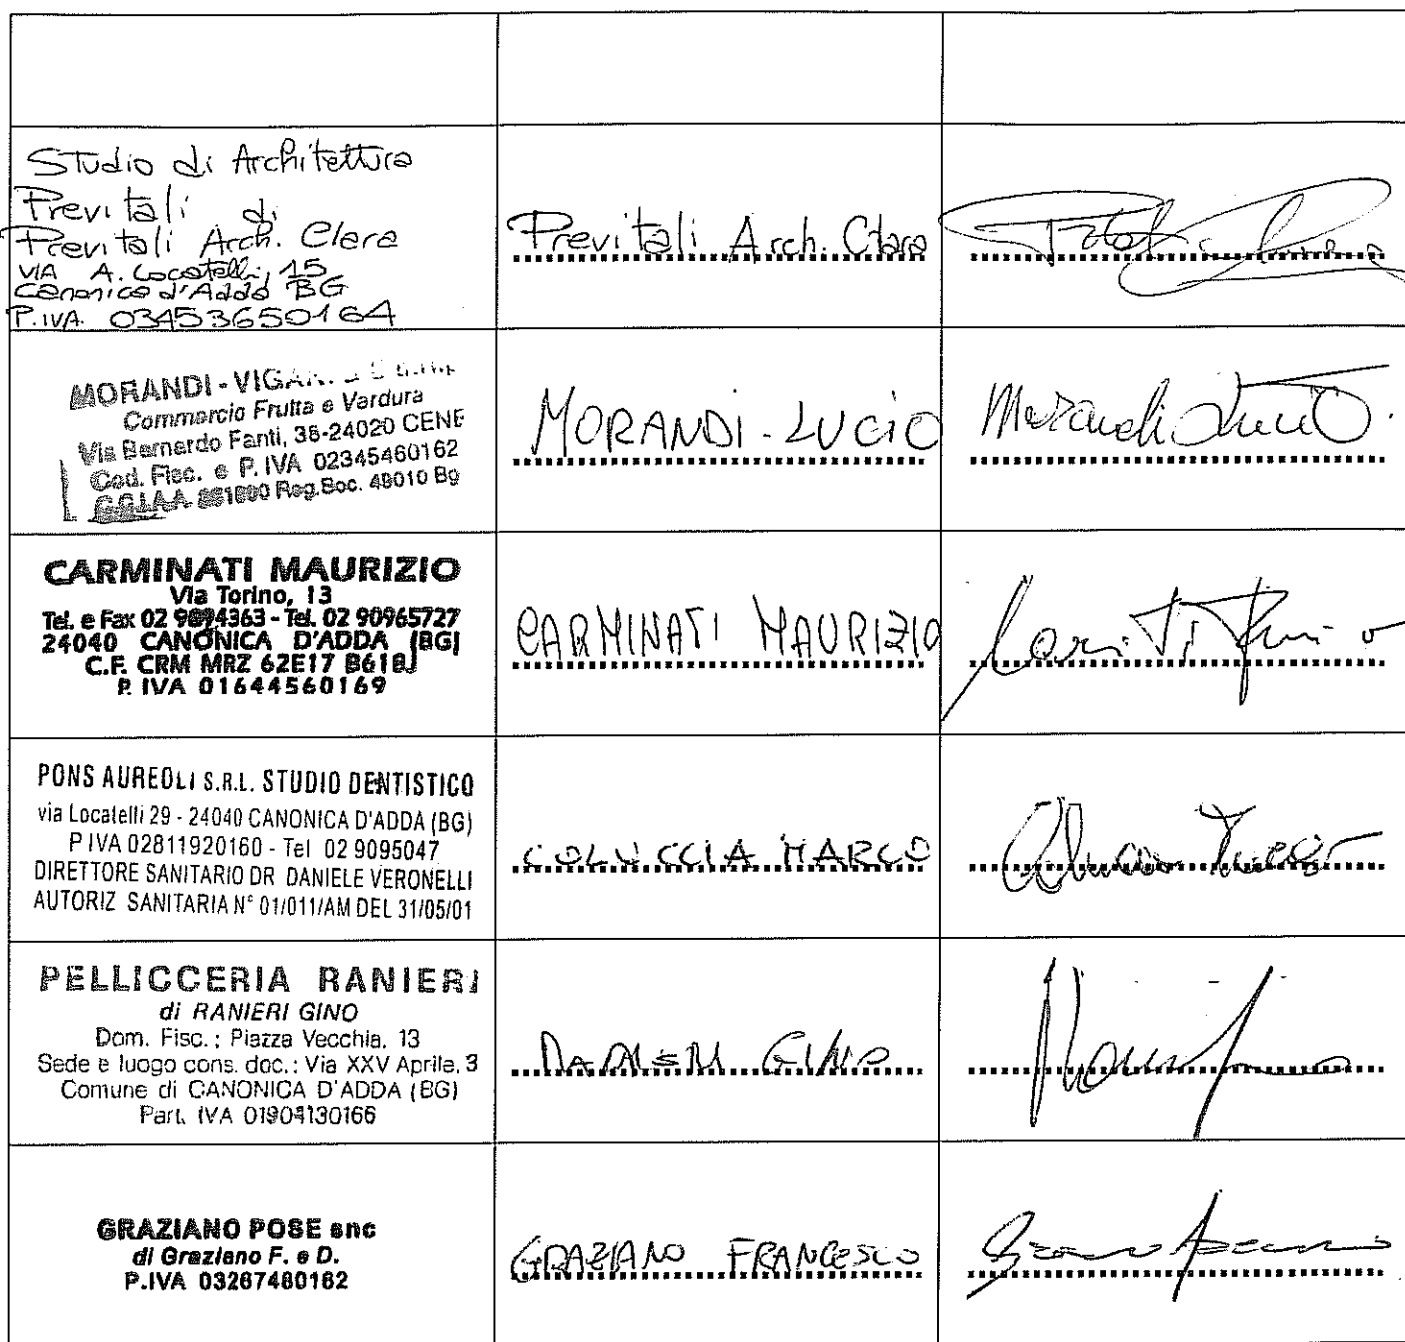 Studio di Architettura
Previtali di
Previtali Arch. Clara
VIA A. Locatelli, 15
Canonica d'Adda BG
P.IVA. 03453650164
Previtali Arch. Clara
MORANDI - VIGAN
Commercio Frutta e Verdura
Via Bernardo Fanti, 38-24020 CENE
Cod. Fisc. e P. IVA 02345460162
Reg.Soc. 49010 Bg
MORANDI - LUCIO
Morandi Lucio
CARMINATI MAURIZIO
Via Torino, 13
Tel. e Fax 02 9094363 - Tel. 02 90965727
24040 CANONICA D'ADDA (BG)
C.F. CRM MRZ 62E17 B618J
P. IVA 01644560169
CARMINATI MAURIZIO
PONS AUREOLI S.R.L. STUDIO DENTISTICO
via Locatelli 29 - 24040 CANONICA D'ADDA (BG)
P IVA 02811920160 - Tel 02 9095047
DIRETTORE SANITARIO DR DANIELE VERONELLI
AUTORIZ SANITARIA N° 01/011/AM DEL 31/05/01
COLUCCIA MARCO
PELLICCERIA RANIERI
di RANIERI GINO
Dom. Fisc.: Piazza Vecchia, 13
Sede e luogo cons. doc.: Via XXV Aprile, 3
Comune di CANONICA D'ADDA (BG)
Part. IVA 01904130166
RANIERI GINO
GRAZIANO POSE snc
di Graziano F. e D.
P.IVA 03267480162
GRAZIANO FRANCESCO